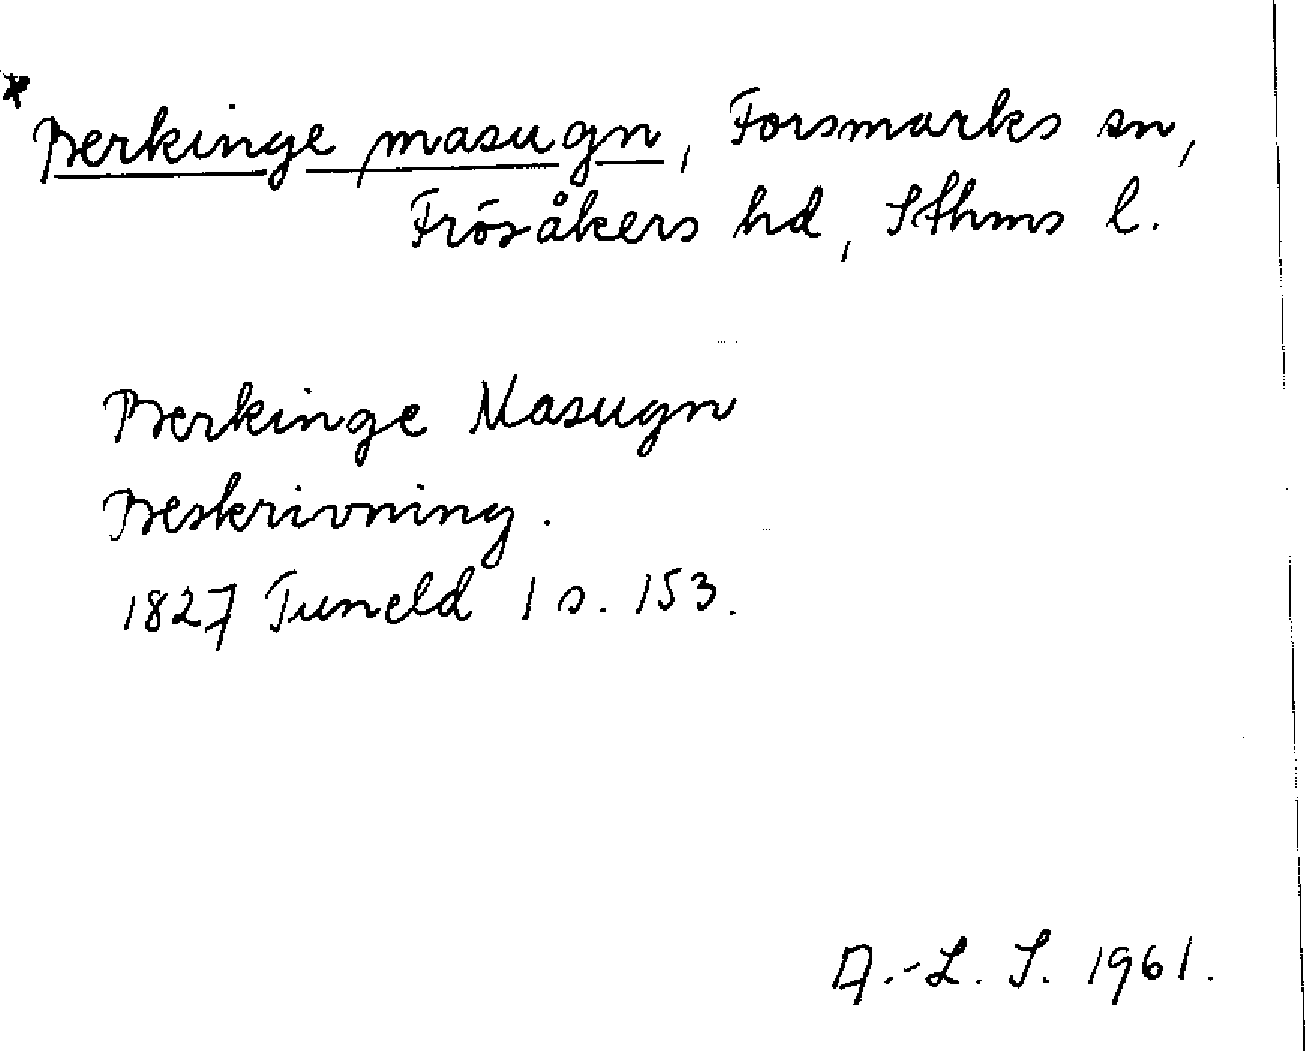 * Berkinge masugn, Forsmarks sn,
Frösåkers hd, Sthms l.
Berkinge Masugn
Beskrivning.
1827 Tuneld 1 s. 153.
A.-L. S. 1961.